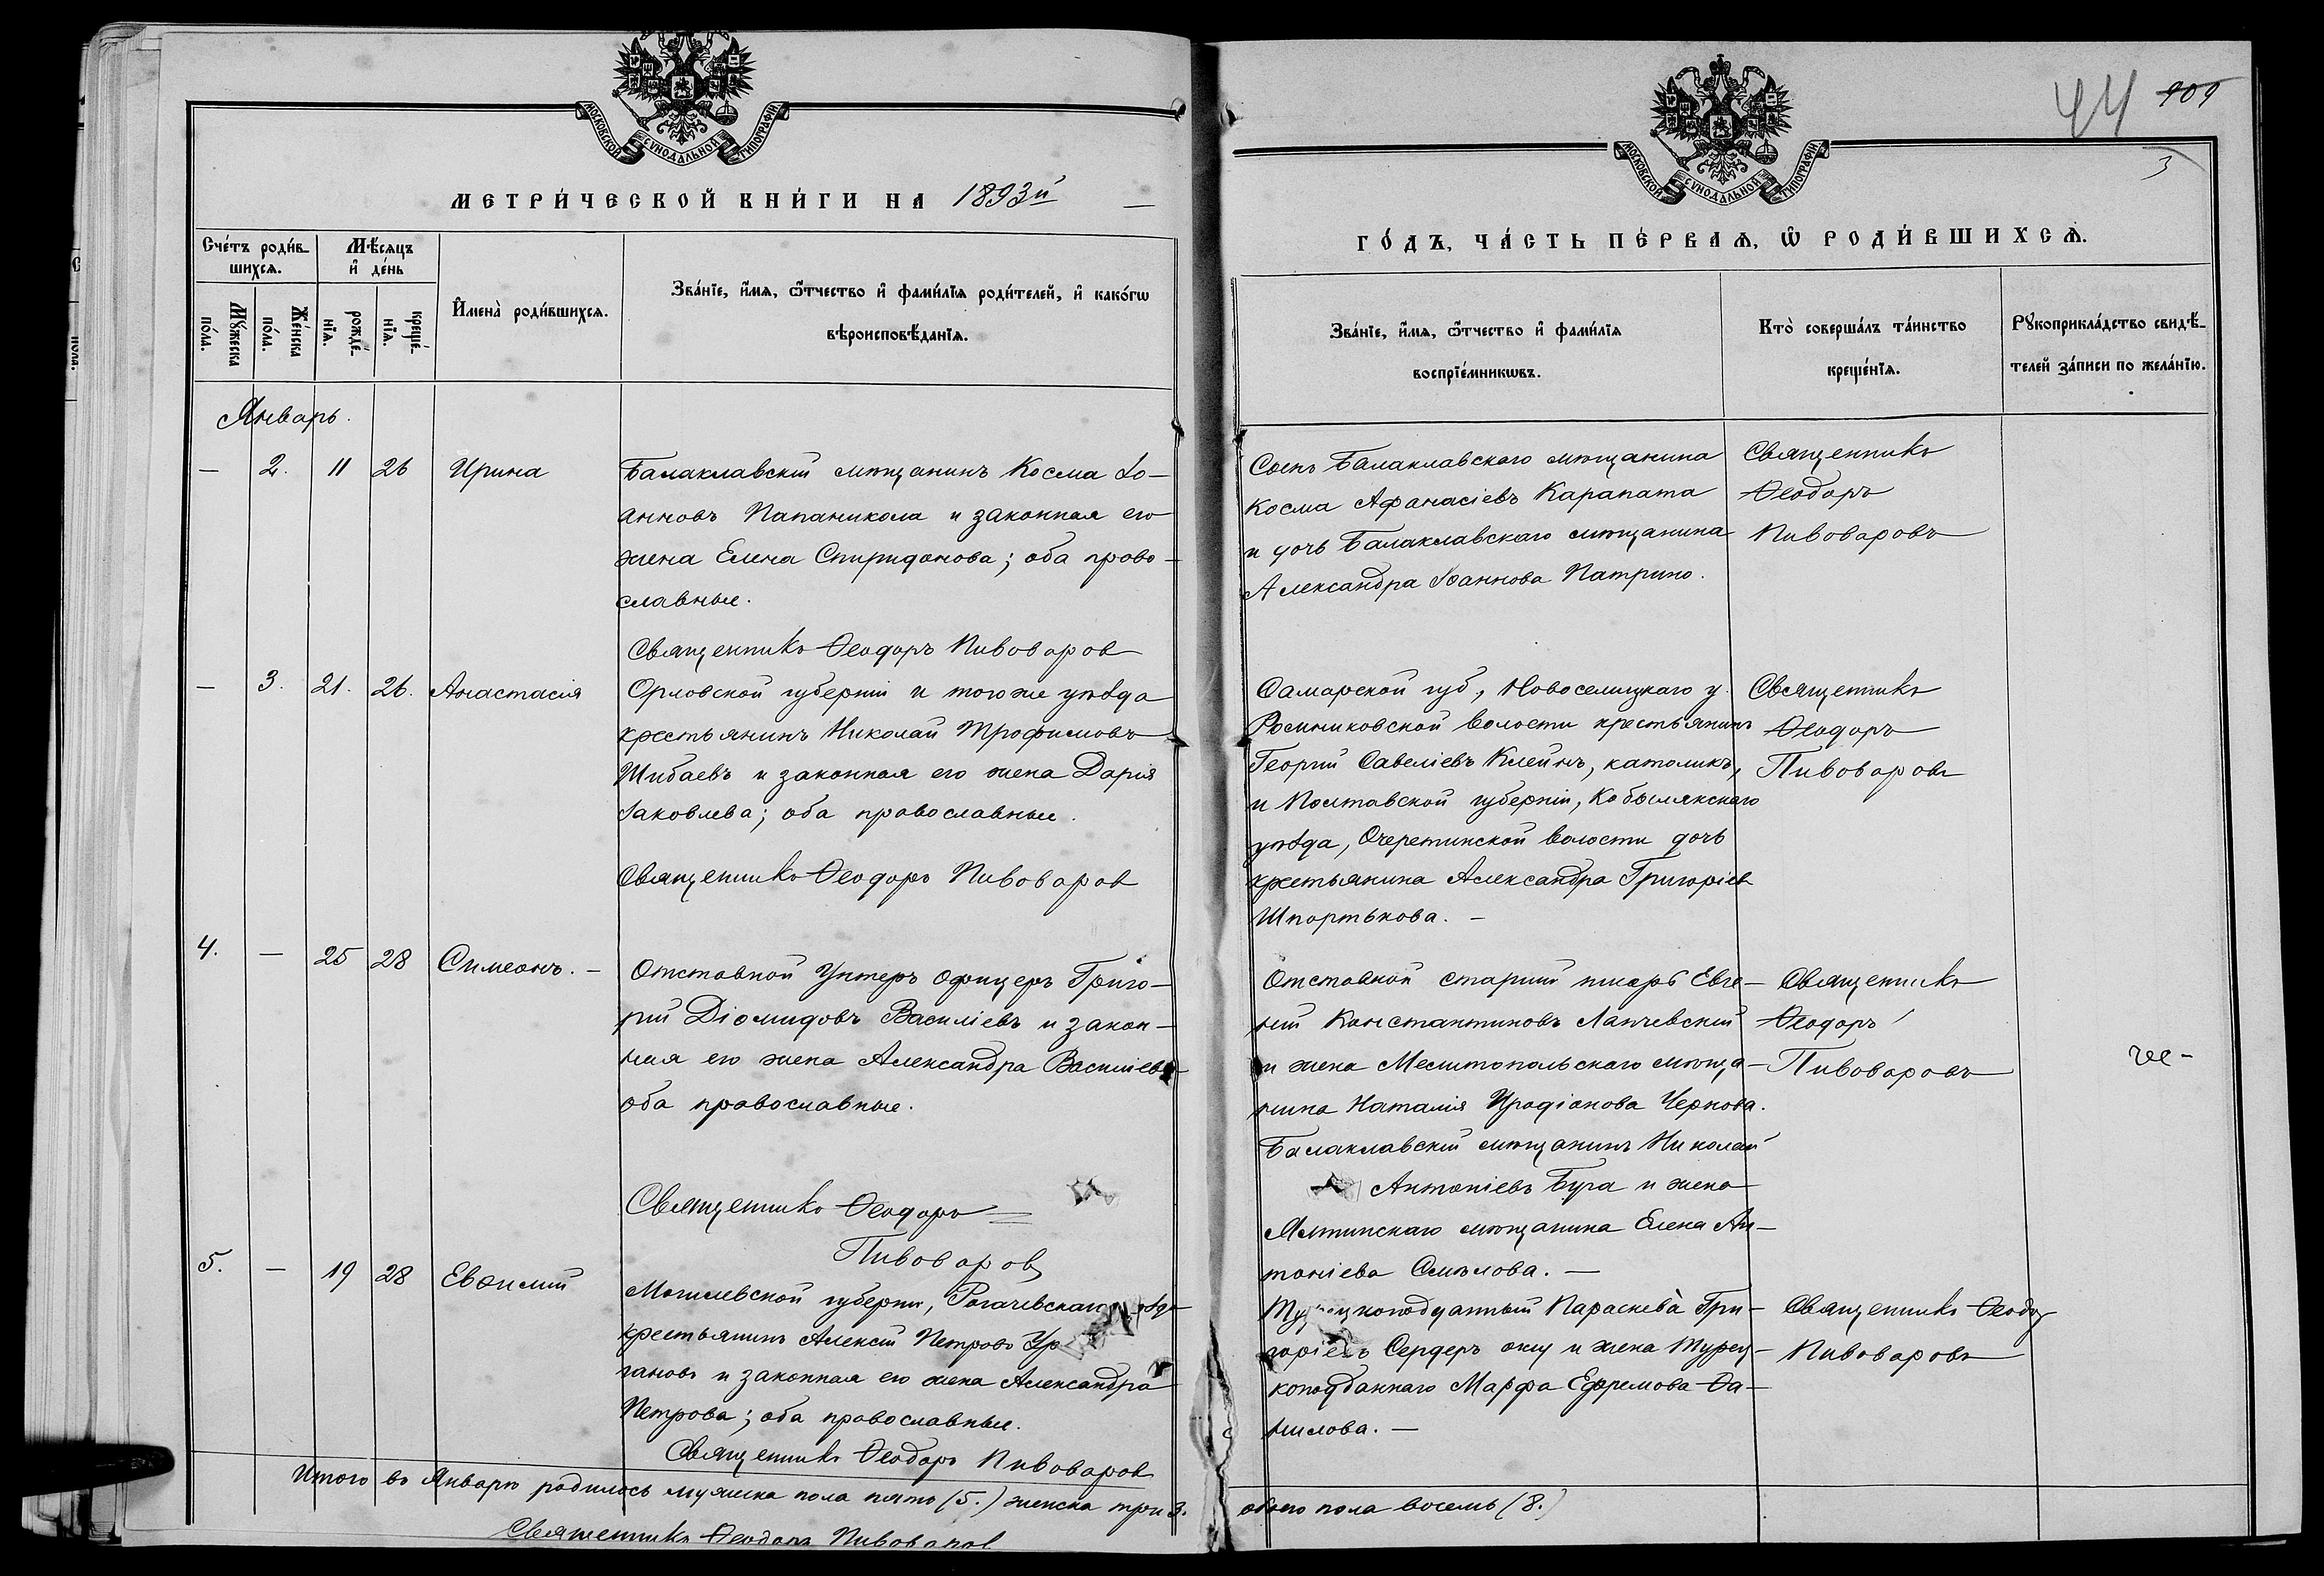 МОСКОВСКОЙ СѴНОДАЛЬНОЙ ТИПОГРАФІИ
МЕТРИ́ЧЕСКОЙ КНИ́ГИ НА 1893й
Сче́тъ роди́в-
шихсѧ.
Мѣ́сѧцъ
и҆ де́нь
Мꙋ́жеска
по́ла.
Же́нска
по́ла.
рожде́-
нїѧ.
креще́-
нїѧ.
И҆мена̀ роди́вшихсѧ.
Зва́нїе, и҆́мѧ, ѻ҆́тчество и҆ фами́лїѧ роди́телей, и҆ како́гѡ
вѣроисповѣ́данїѧ.
Январь.
— 2. 11 26 Ирина
Балаклавскій мѣщанинъ Косма Іо-
анновъ Папаникола и законная его
жена Елена Спиридонова; оба право-
славные.
Священникъ Ѳеодоръ Пивоваров
— 3. 21. 26. Анастасія
Орловской губерніи и того же уѣзда
крестьянинъ Николай Трофимовъ
Шибаевъ и законная его жена Дарія
Іаковлева; оба православные.
Священникъ Ѳеодоръ Пивоваров
4. — 25 28 Симеонъ. —
Отставной Унтеръ офицеръ Григо-
рій Діомидовъ Василіевъ и закон-
ная его жена Александра Василіева
оба православные.
Священникъ Ѳеодоръ
Пивоваров
5. — 19 28 Евѳимій
Могилевской губерніи, Рогачевскаго
крестьянинъ Алексій Петровъ
гановъ и законная его жена Александра
Петрова; оба православные.
Священникъ Ѳеодоръ Пивоваров
Итого въ Январѣ родилось мужеска пола пять (5.) женска три 3.
Священникъ Ѳеодоръ Пивоваров
44 909
3
МОСКОВСКОЙ СѴНОДАЛЬНОЙ ТИПОГРАФІИ
ГО́ДЪ, ЧА́СТЬ ПЕ́РВАѦ, Ѡ҆ РОДИ́ВШИХСѦ.
Зва́нїе, и҆́мѧ, ѻ҆́тчество и҆ фами́лїѧ
воспрїе́мникѡвъ.
Кто̀ соверша́лъ та́инство
креще́нїѧ.
Рꙋкоприкла́дство свидѣ́-
телей за́писи по жела́нїю.
Сынъ Балаклавскаго мѣщанина
Косма Афанасіевъ Карапата
и дочь Балаклавскаго мѣщанина
Александра Іоаннова Патрино.
Священникъ
Ѳеодоръ
Пивоваровъ
Самарской губ, Новоселицкаго у.
волости крестьянинъ
Георгій Савеліевъ Клейнъ, католикъ,
и Полтавской губерніи, Кобылякскаго
уѣзда, Очеретинской волости дочь
крестьянина Александра Григоріев
Шпортькова. —
Священникъ
Ѳеодоръ
Пивоваровъ
Отставной старшій писарь Евге-
ній Константиновъ Лапчевскій
и жена Мелитопольскаго мѣща-
нина Наталія Иродіонова Чернова.
Балаклавскій мѣщанинъ Николай
Антоніевъ Бура и жена
Ялтинскаго мѣщанина Елена Ан-
тоніева Смѣлова. —
Священникъ
Ѳеодоръ
Пивоваровъ
Параскева Гри-
горіевъ Сердеръ оглу и жена Турец-
коподданнаго Марфа Ефремова Да-
нилова. —
Священникъ Ѳеодоръ
Пивоваровъ
обоего пола восемь (8.)